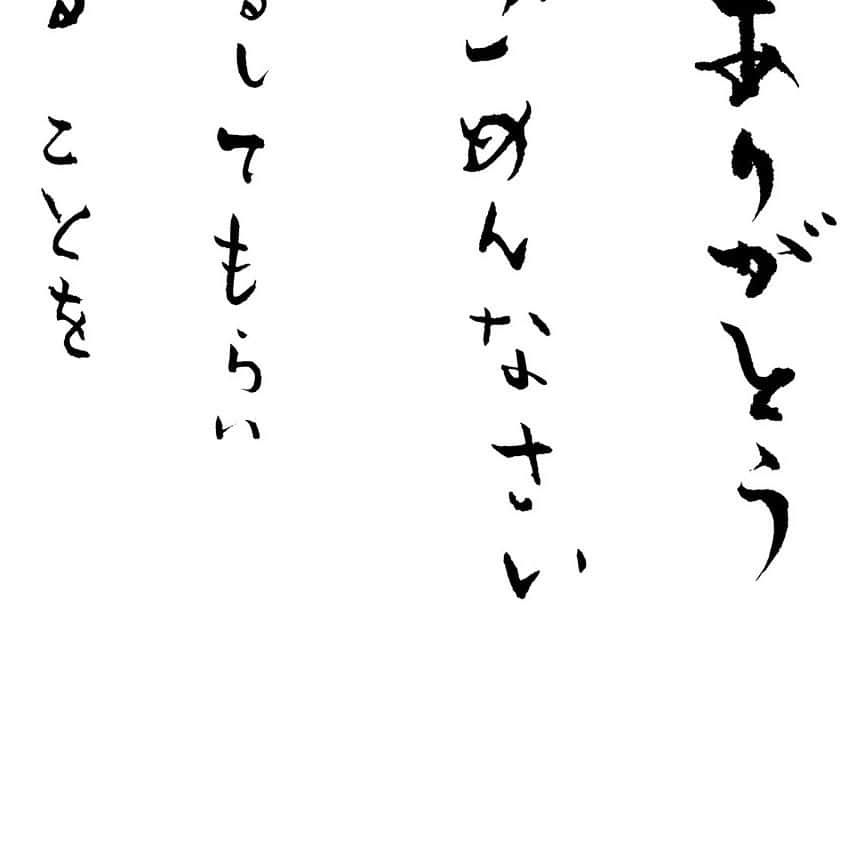 ありがとう
ごめんなさい
るしてもらい
ることを